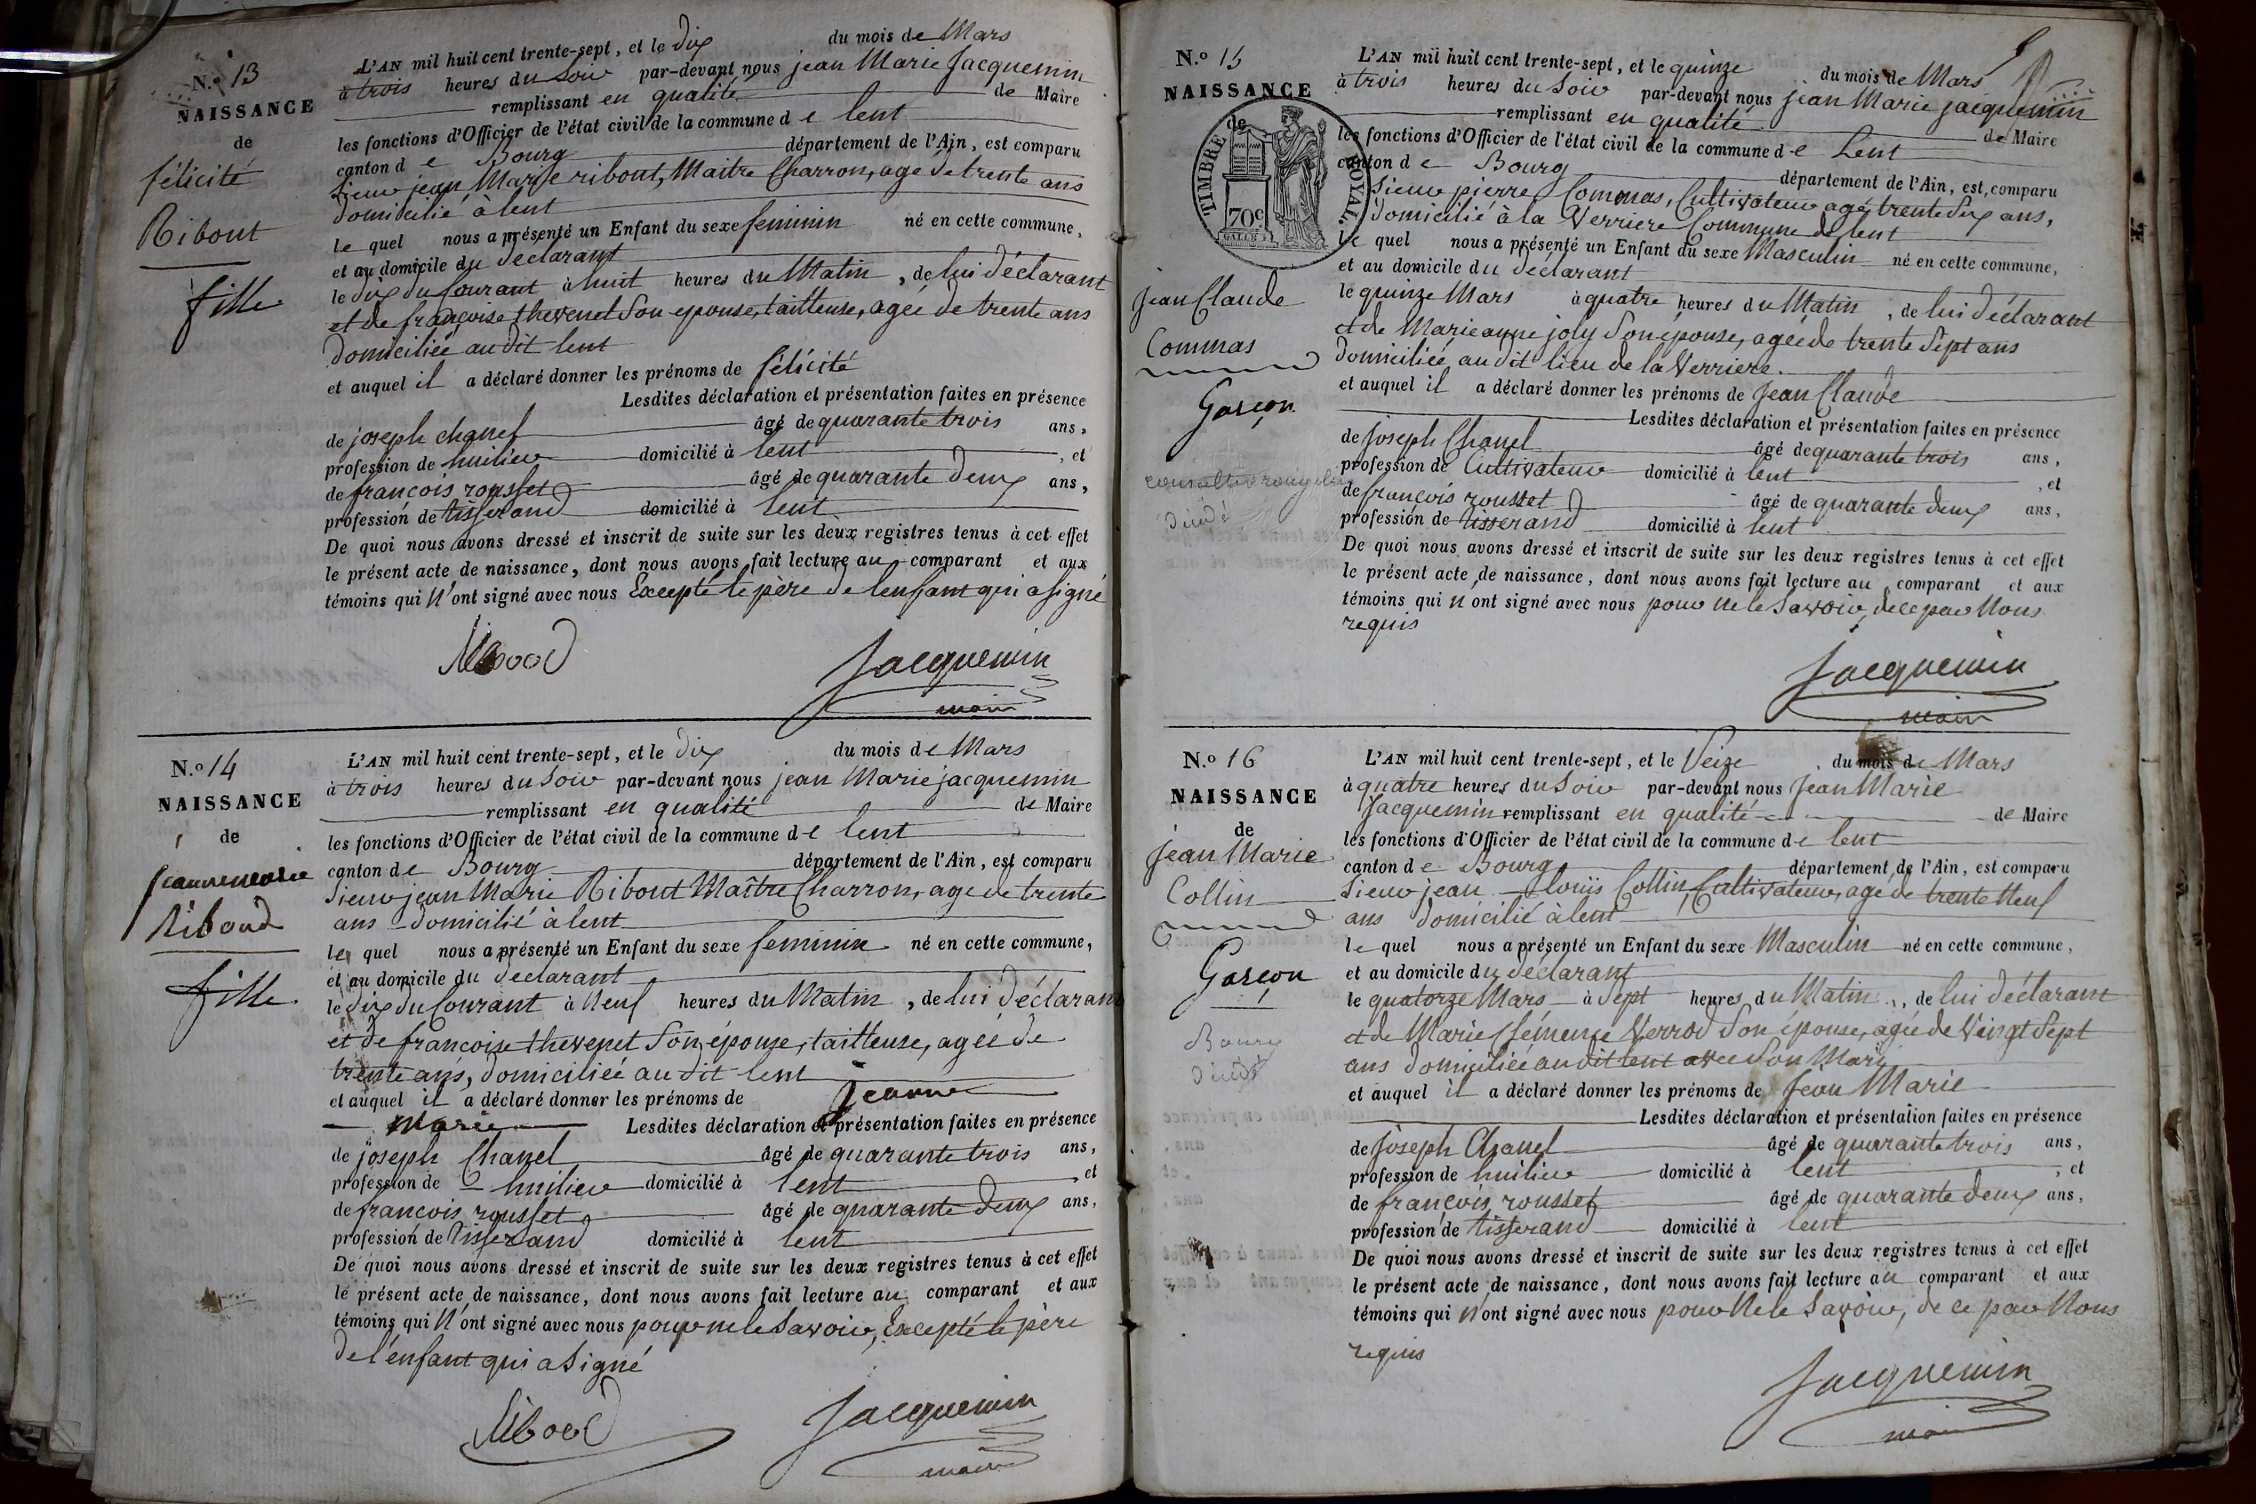 N.º 13
NAISSANCE
de
félicité
Ribout
fille
L'AN mil huit cent trente-sept, et le dix du mois de Mars
à trois heures du Soir par-devant nous jean Marie Jacquemin
remplissant en qualité de Maire
les fonctions d'Officier de l'état civil de la commune de lent
canton de Bourg département de l'Ain, est comparu
Sieur jean Marie ribout, Maitre Charron, agé de trente ans
domicilié à lent
le quel nous a présenté un Enfant du sexe feminin né en cette commune,
et au domicile du déclarant
le dix du Courant à huit heures du Matin, de lui déclarant
et de françoise thevenet Son epouse, tailleuse, agée de trente ans
domiciliée au dit lent
et auquel il a déclaré donner les prénoms de félicité
Lesdites déclaration et présentation faites en présence
de joseph chanel âgé de quarante trois ans,
profession de huilier domicilié à lent, et
de françois rousset âgé de quarante deux ans,
profession de tisserand domicilié à lent
De quoi nous avons dressé et inscrit de suite sur les deux registres tenus à cet effet
le présent acte de naissance, dont nous avons fait lecture au comparant et aux
témoins qui n'ont signé avec nous Excepté le père de lenfant qui a signé
Jacquemin
maire
N.º 14
NAISSANCE
de
jeannemarie
Riboud
fille
L'AN mil huit cent trente-sept, et le dix du mois de Mars
à trois heures du Soir par-devant nous jean Marie jacquemin
remplissant en qualité de Maire
les fonctions d'Officier de l'état civil de la commune de lent
canton de Bourg département de l'Ain, est comparu
Sieur jean Marie Ribout Maître Charron, agé de trente
ans domicilié à lent
le quel nous a présenté un Enfant du sexe feminin né en cette commune,
et au domicile du déclarant
le dix du Courant à Neuf heures du Matin, de lui déclarant
et de francoise thevenet Son épouse, tailleuse, agée de
trente ans, domiciliée au dit lent
et auquel il a déclaré donner les prénoms de jeanne
marie Lesdites déclaration et présentation faites en présence
de joseph Chanel âgé de quarante trois ans,
profession de huilier domicilié à lent, et
de francois rousset âgé de quarante deux ans,
profession de tisserand domicilié à lent
De quoi nous avons dressé et inscrit de suite sur les deux registres tenus à cet effet
le présent acte de naissance, dont nous avons fait lecture au comparant et aux
témoins qui n'ont signé avec nous pour ne le Savoir, Excepté le père
de l'énfant qui a Signé
Jacquemin
maire
N.º 15
NAISSANCE
de
TIMBRE ROYAL.
70c
jean Claude
Commas
Garçon
décédé
L'AN mil huit cent trente-sept, et le quinze du mois de Mars
à trois heures du Soir par-devant nous jean Marie jacquemin
remplissant en qualité de Maire
les fonctions d'Officier de l'état civil de la commune de Lent
canton de Bourg département de l'Ain, est comparu
Sieur pierre Commas, Cultivateur agé trente Six ans,
domicilié à la Verriere Commune de lent
le quel nous a présenté un Enfant du sexe Masculin né en cette commune,
et au domicile du déclarant
le quinze Mars à quatre heures du Matin, de lui déclarant
et de Marie anne joly Son épouse, agée de trente Sept ans
domiciliée au dit lieu de la Verriere.
et auquel il a déclaré donner les prénoms de Jean Claude
Lesdites déclaration et présentation faites en présence
de joseph Chanel âgé de quarante trois ans,
profession de Cultivateur domicilié à lent, et
de françois rousset âgé de quarante deux ans,
profession de tisserand domicilié à lent
De quoi nous avons dressé et inscrit de suite sur les deux registres tenus à cet effet
le présent acte de naissance, dont nous avons fait lecture au comparant et aux
témoins qui n'ont signé avec nous pour ne le Savoir, de ce par Nous
requis
Jacquemin
maire
N.º 16
NAISSANCE
de
jean Marie
Collin
Garçon
Bourg
décédé
L'AN mil huit cent trente-sept, et le Seize du mois de Mars
à quatre heures du Soir par-devant nous Jean Marie
Jacquemin remplissant en qualité de Maire
les fonctions d'Officier de l'état civil de la commune de lent
canton de Bourg département de l'Ain, est comparu
Sieur jean louis Collin, Cultivateur, agé de trente Neuf
ans domicilié à lent
le quel nous a présenté un Enfant du sexe Masculin né en cette commune,
et au domicile du déclarant
le quatorze Mars à Sept heures du Matin, de lui déclarant
et de Marie Clémence Verrod Son épouse, agée de Vingt Sept
ans domiciliée au dit lent avec Son Mari
et auquel il a déclaré donner les prénoms de Jean Marie
Lesdites déclaration et présentation faites en présence
de joseph Chanel âgé de quarante trois ans,
profession de huilier domicilié à lent, et
de françois rousset âgé de quarante deux ans,
profession de tisserand domicilié à lent
De quoi nous avons dressé et inscrit de suite sur les deux registres tenus à cet effet
le présent acte de naissance, dont nous avons fait lecture au comparant et aux
témoins qui n'ont signé avec nous pour Ne le Savoir, de ce par Nous
requis
Jacquemin
maire